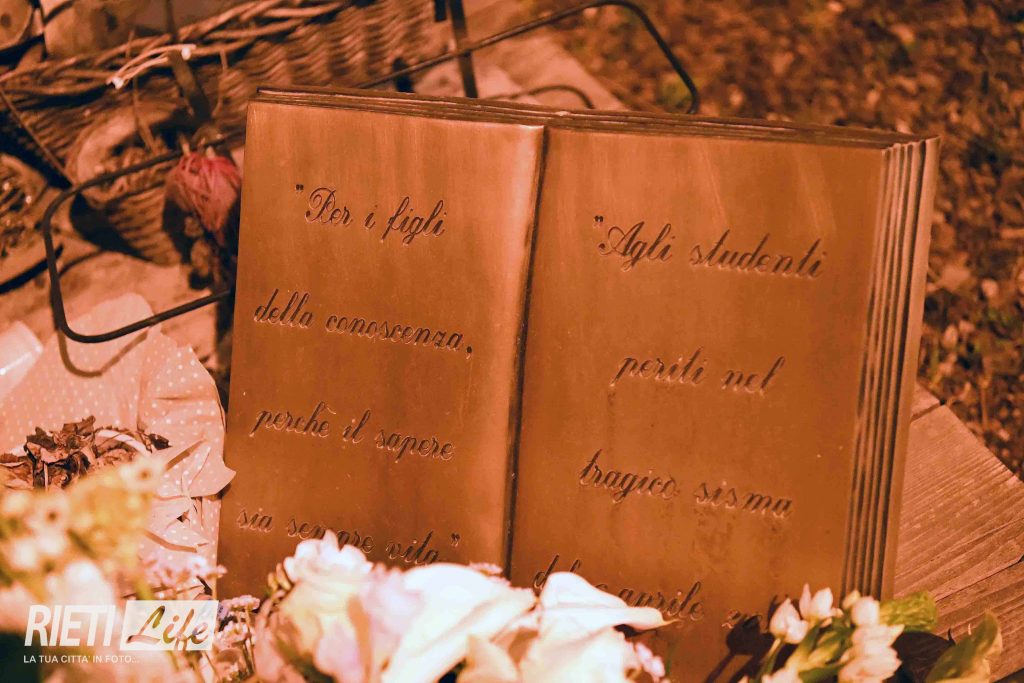 "Per i figli
della conoscenza,
perchè il sapere
sia sempre vita"
"Agli studenti
periti nel
tragico sisma
aprile
RIETI Life
LA TUA CITTA' IN FOTO...